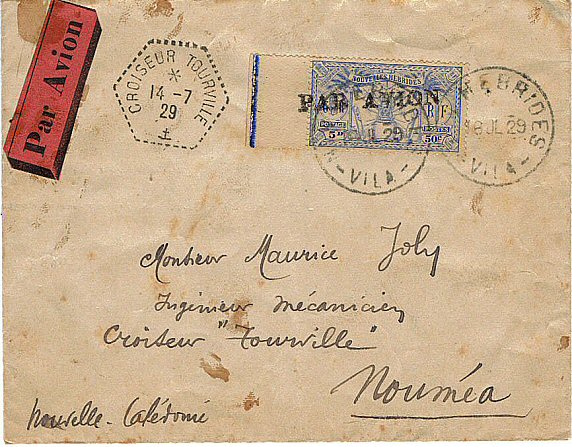 Par Avion
CROISEUR TOURVILLE
14 -7
29
NOUVELLES HEBRIDES
PAR AVION
R F
POSTES POSTES
5d 50c
HEBRIDES
JL 29
VILA
HEBRIDES
8 JL 29
VILA
Monsieur Maurice Joly
Ingénieur mécanicien
Croiseur "Tourville"
Nouméa
Nouvelle-Calédonie